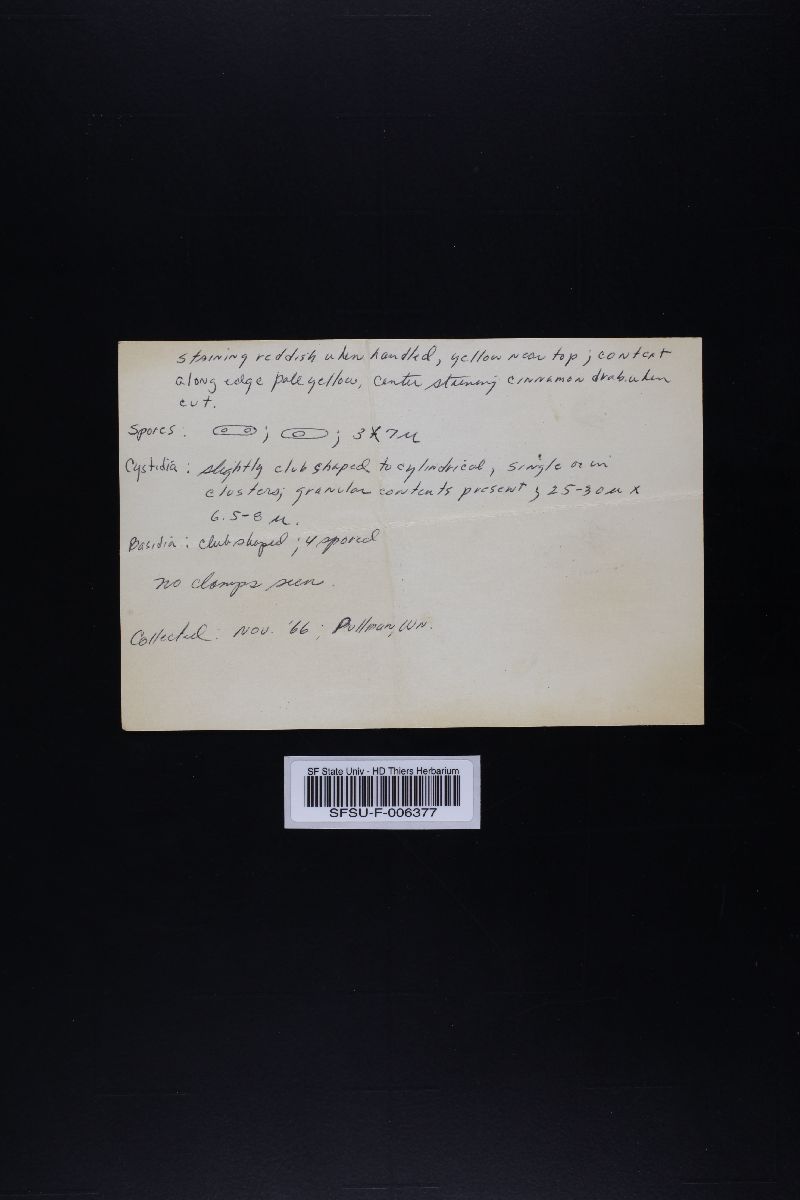 staining reddish when handled, yellow near top; context
along edge pale yellow, center staining cinnamon drab when
cut.
Spores: ; ; 3X7µ
Cystidia: slightly club shaped to cylindrical, single or in
clusters; granular contents present; 25-30µ x
6.5-8 µ.
Basidia: club shaped; 4 spored
no clamps seen.
Collected: Nov. '66; Pullman, WN.
SF State Univ - HD Thiers Herbarium
SFSU-F-006377